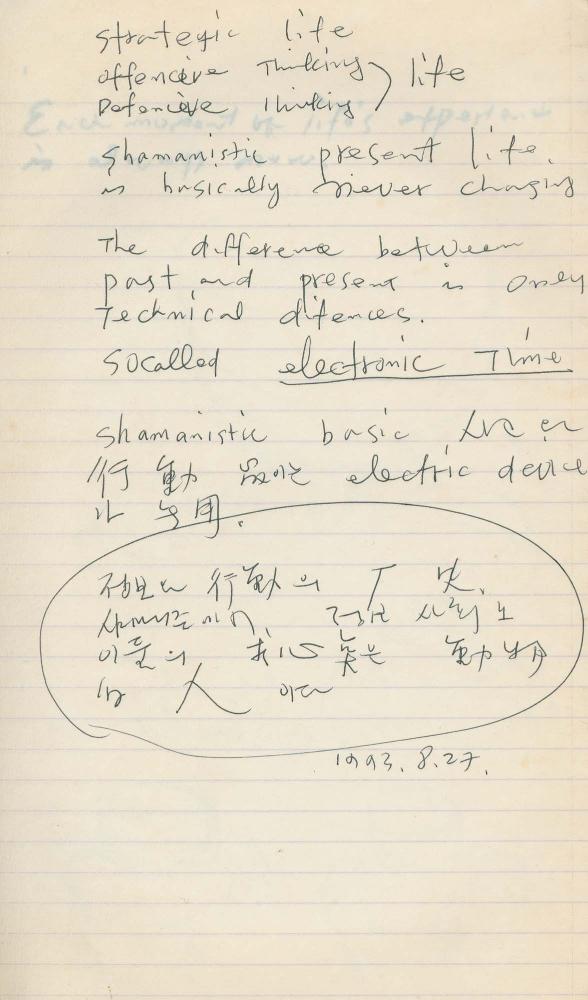 strategic life
offencive Thinking
Defencive Thinking
life
shamanistic present life.
is basically never changing
The difference between
past and present is only
Technical difences.
Socalled electronic Time
shamanistic basic
行動 없이는 electric device
가 無用.
정보는 行動의
샤머니즘이나, 정보 사회도
이들의 核心 は 動物
的 人 이다
1993. 8.27.